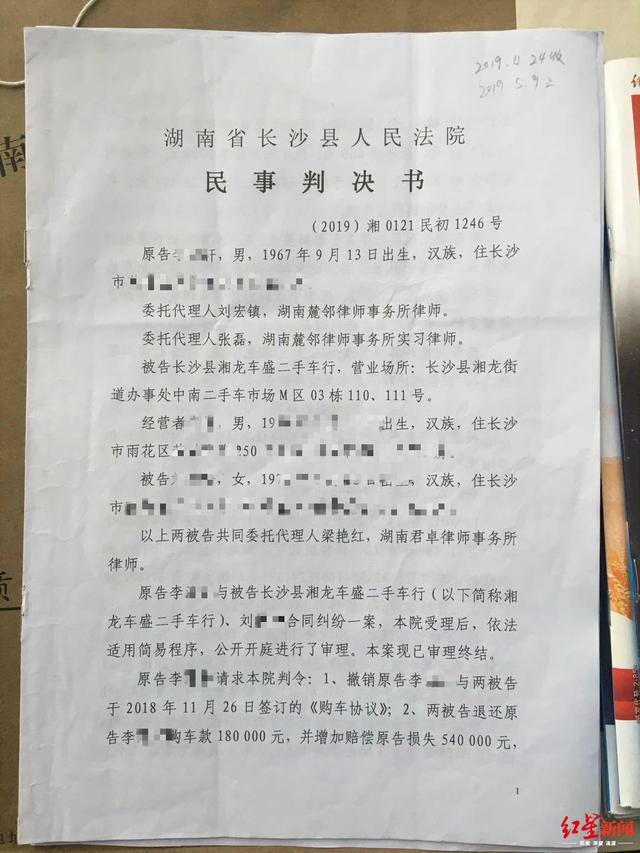 2019.4.24收
2019 5.9上
湖南省长沙县人民法院
民事判决书
（2019）湘0121民初1246号
原告李 轩，男，1967年9月13日出生，汉族，住长沙
市
委托代理人刘宏镇，湖南麓邻律师事务所律师。
委托代理人张磊，湖南麓邻律师事务所实习律师。
被告长沙县湘龙车盛二手车行，营业场所：长沙县湘龙街
道办事处中南二手车市场M区03栋110、111号。
经营者 ，男，19 出生，汉族，住长沙
市雨花区
被告 ，女，197 ，汉族，住长沙
市
以上两被告共同委托代理人梁艳红，湖南君卓律师事务所
律师。
原告李 与被告长沙县湘龙车盛二手车行（以下简称湘
龙车盛二手车行）、刘 合同纠纷一案，本院受理后，依法
适用简易程序，公开开庭进行了审理。本案现已审理终结。
原告李 请求本院判令：1、撤销原告李 与两被告
于2018年11月26日签订的《购车协议》；2、两被告退还原
告李 购车款180000元，并增加赔偿原告损失540000元，
1
南
质
红星新闻